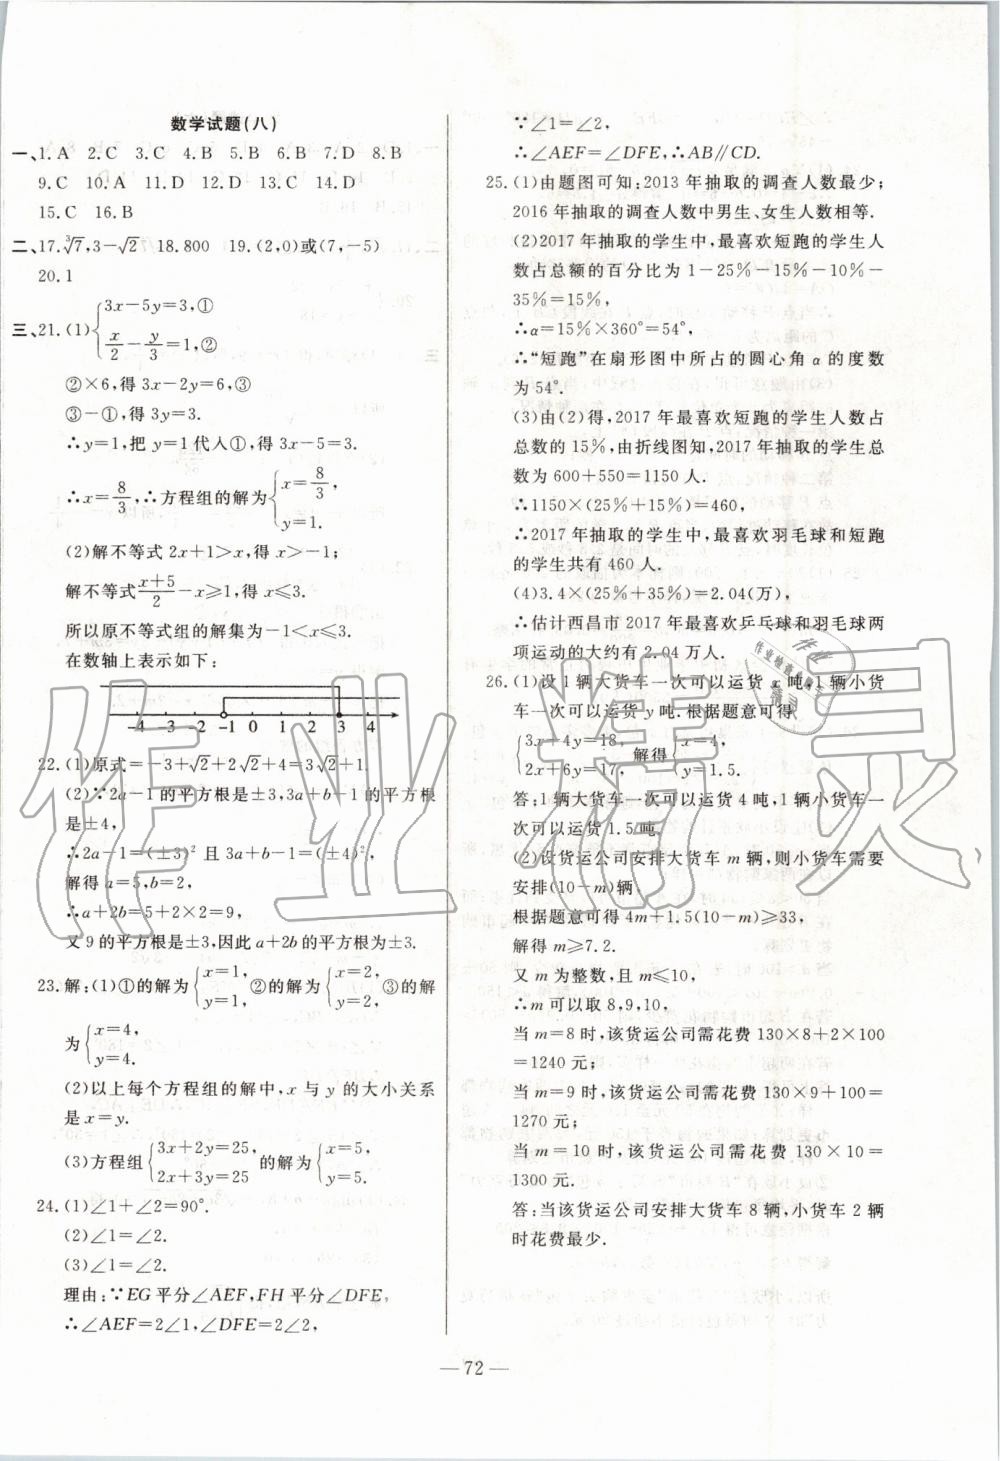 数学试题(八)
一、1.A 2.C 3.C 4.B 5.B 6.B 7.D 8.B
9.C 10.A 11.D 12.D 13.C 14.D
15.C 16.B
二、17.∛7,3-√2 18.800 19.(2,0)或(7,-5)
20.1
三、21.(1){3x-5y=3,①
x/2-y/3=1,②
②×6,得 3x-2y=6,③
③-①,得 3y=3.
∴y=1,把 y=1 代人①,得 3x-5=3.
∴x=8/3,∴方程组的解为{x=8/3,
y=1.
(2)解不等式 2x+1>x,得 x>-1;
解不等式(x+5)/2-x≥1,得 x≤3.
所以原不等式组的解集为-1<x≤3.
在数轴上表示如下:
-4 -3 -2 -1 0 1 2 3 4
22.(1)原式=-3+√2+2√2+4=3√2+1.
(2)∵2a-1 的平方根是±3,3a+b-1 的平方根
是±4,
∴2a-1=(±3)² 且 3a+b-1=(±4)²,
解得 a=5,b=2,
∴a+2b=5+2×2=9,
又 9 的平方根是±3,因此 a+2b 的平方根为±3.
23.解:(1)①的解为{x=1, y=1, ②的解为{x=2, y=2, ③的解
为{x=4,
y=4.
(2)以上每个方程组的解中,x 与 y 的大小关系
是 x=y.
(3)方程组{3x+2y=25, 2x+3y=25 的解为{x=5, y=5.
24.(1)∠1+∠2=90°.
(2)∠1=∠2.
(3)∠1=∠2.
理由:∵EG 平分∠AEF,FH 平分∠DFE,
∴∠AEF=2∠1,∠DFE=2∠2,
∵∠1=∠2,
∴∠AEF=∠DFE,∴AB∥CD.
25.(1)由题图可知:2013 年抽取的调查人数最少;
2016 年抽取的调查人数中男生、女生人数相等.
(2)2017 年抽取的学生中,最喜欢短跑的学生人
数占总额的百分比为 1-25%-15%-10%-
35%=15%,
∴α=15%×360°=54°,
∴“短跑”在扇形图中所占的圆心角 α 的度数
为 54°.
(3)由(2)得,2017 年最喜欢短跑的学生人数占
总数的 15%,由折线图知,2017 年抽取的学生总
数为 600+550=1150 人.
∴1150×(25%+15%)=460,
∴2017 年抽取的学生中,最喜欢羽毛球和短跑
的学生共有 460 人.
(4)3.4×(25%+35%)=2.04(万),
∴估计西昌市 2017 年最喜欢乒乓球和羽毛球两
项运动的大约有 2.04 万人.
26.(1)设 1 辆大货车一次可以运货 x 吨,1 辆小货
车一次可以运货 y 吨.根据题意可得
{3x+4y=18, 2x+6y=17, 解得{x=4, y=1.5.
答:1 辆大货车一次可以运货 4 吨,1 辆小货车一
次可以运货 1.5 吨.
(2)设货运公司安排大货车 m 辆,则小货车需要
安排(10-m)辆.
根据题意可得 4m+1.5(10-m)≥33,
解得 m≥7.2.
又 m 为整数,且 m≤10,
∴m 可以取 8,9,10,
当 m=8 时,该货运公司需花费 130×8+2×100
=1240 元;
当 m=9 时,该货运公司需花费 130×9+100=
1270 元;
当 m=10 时,该货运公司需花费 130×10=
1300 元.
答:当该货运公司安排大货车 8 辆,小货车 2 辆
时花费最少.
— 72 —
作业精灵